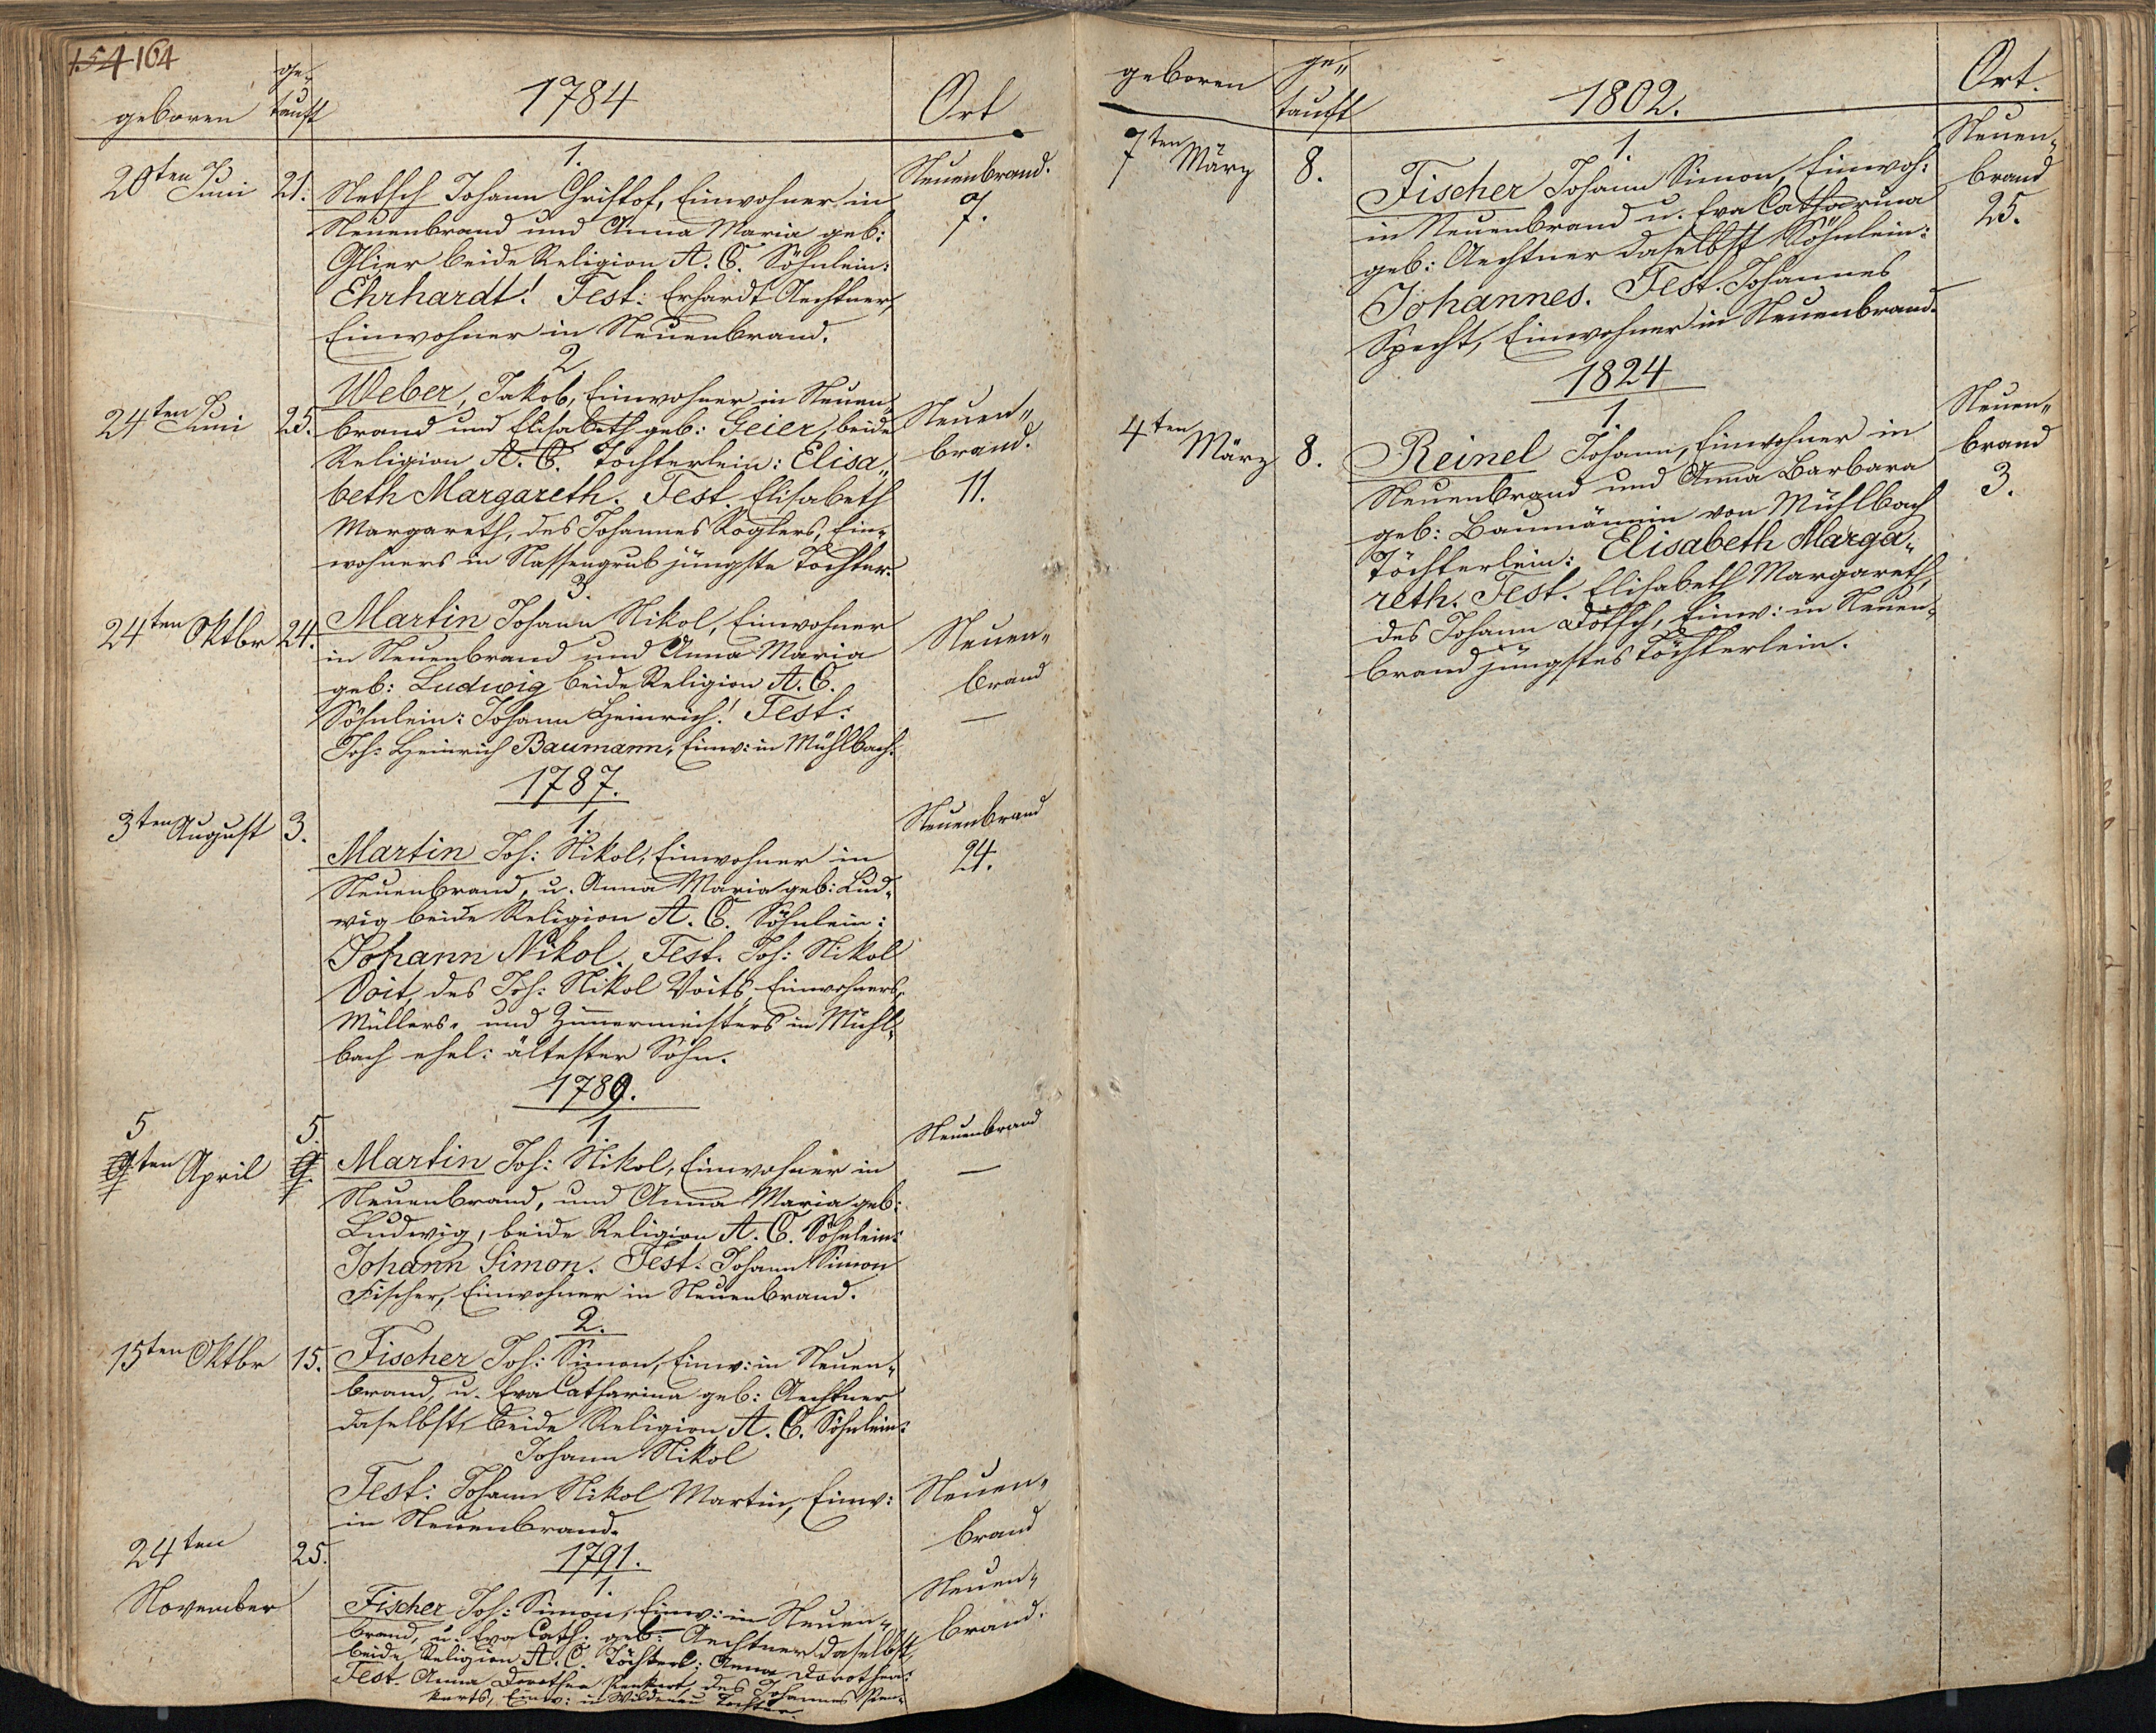 154 164
geboren
ge-
tauft
1784
Ort
1.
20ten Juni
21.
Netsch Johann Christof, Einwohner in
Neuenbrand und Anna Maria geb:
Glier beide Religion A. C. Söhnlein:
Ehrhardt! Test: Erhardt Aechtner,
Einwohner in Neuenbrand.
Neuenbrand.
7.
2
24ten Juni
25.
Weber, Jakob, Einwohner in Neuen-
brand und Elisabeth geb: Geier, beide
Religion A. C. Töchterlein: Elisa„
beth Margareth. Test. Elisabeth
Margareth, des Johannes Koglers, Ein-
wohners in Nassengrub jüngste Tochter.
Neuen„
brand.
11.
3.
24ten Oktbr
24.
Martin Johann Nikol, Einwohner
in Neuenbrand und Anna Maria
geb: Ludwig beide Religion A. C.
Söhnlein: Johann Heinrich! Test:
Joh: Heinrich Baumann, Einw: in Mühlbach.
Neuen„
brand
—
1787.
1.
3ten August
3.
Martin Joh: Nikol, Einwohner in
Neuenbrand, u. Anna Maria geb: Lud-
wig beide Religion A. C. Söhnlein:
Johann Nikol. Test. Joh: Nikol
Voit, des Joh: Nikol Voits, Einwohners,
Müllers- und Zimmermeisters in Mühl-
bach ehel: ältester Sohn.
Neuenbrand
24.
1789.
1.
5
9ten April
5.
9.
Martin Joh: Nikol, Einwohner in
Neuenbrand, und Anna Maria geb:
Ludwig, beide Religion A. C. Söhnlein:
Johann Simon. Test: Johann Simon
Fischer, Einwohner in Neuenbrand.
Neuenbrand
—
2.
15ten Oktbr
15.
Fischer Joh: Simon, Einw: in Neuen-
brand, u. Eva Catharina geb: Aechtner
daselbst, beide Religion A. C. Söhnlein:
Johann Nikol
Test: Johann Nikol Martin, Einw:
in Neuenbrand.
Neuen„
brand
1791.
1.
24ten
November
25.
Fischer Joh: Simon, Einw: in Neuen-
brand, u. Eva Cath: geb: Aechtner daselbst,
beide Religion A. C. Töchterl: Anna Dorothea.
Test. Anna Dorothea des Johannes
Einw: in Wildenau Tochter.
Neuen„
brand.
geboren
ge„
tauft
1802.
Ort.
1.
7ten März
8.
Fischer Johann Simon, Einwoh:
in Neuenbrand u. Eva Catharina
geb: Aechtner daselbst Söhnlein:
Johannes. Test. Johannes
Specht, Einwohner in Neuenbrand.
Neuen„
brand
25.
—
1824
1.
4ten März
8.
Reinel Johann, Einwohner in
Neuenbrand und Anna Barbara
geb: Baumännin von Mühlbach
Töchterlein: Elisabeth Marga„
reth. Test. Elisabeth Margareth,
des Johann Dötsch, Einw: in Neuen-
brand jüngstes Töchterlein.
Neuen„
brand
3.